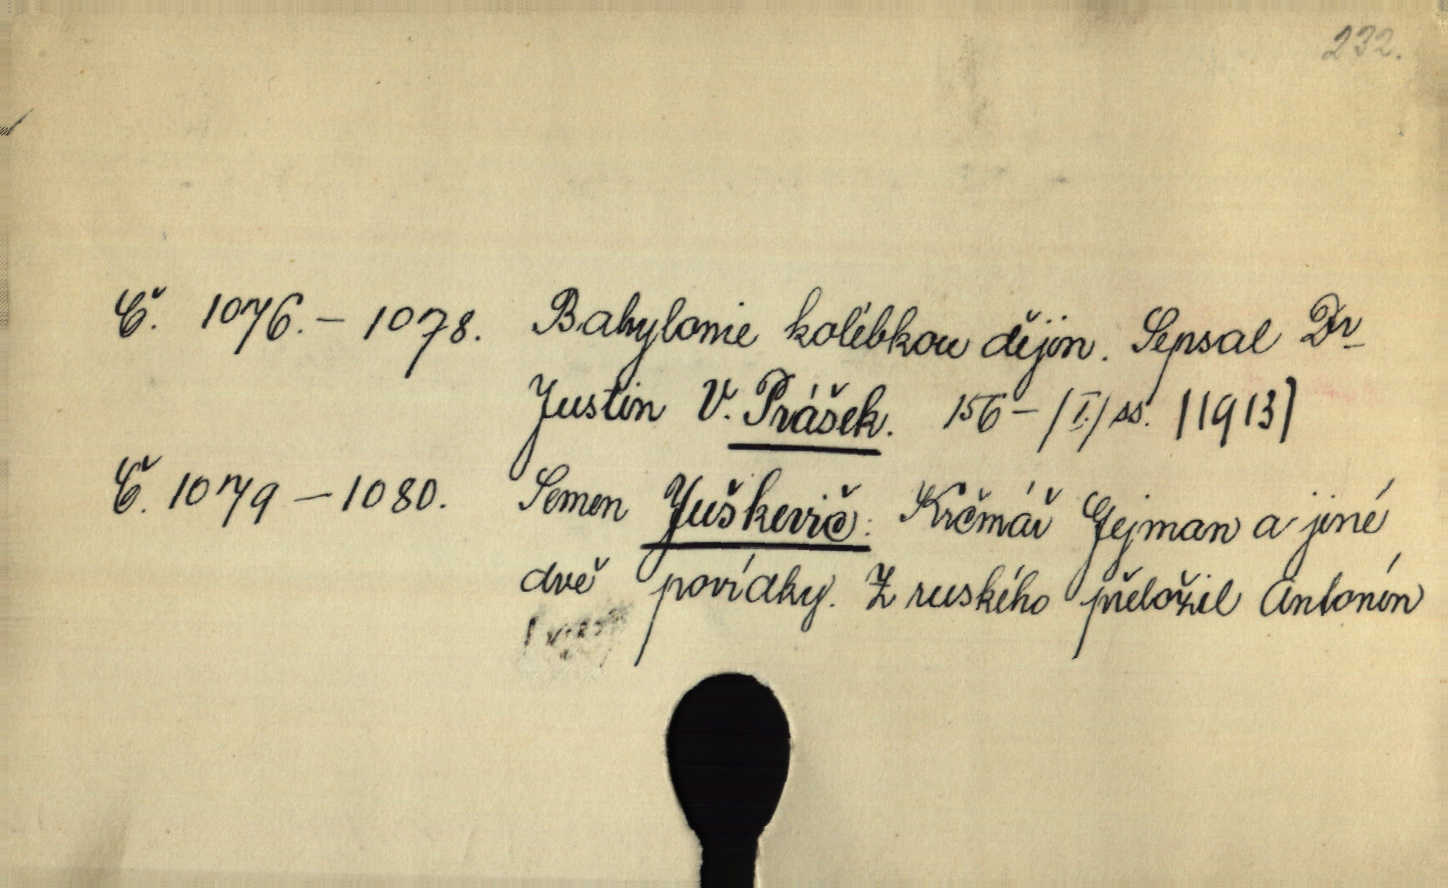 232.
Č. 1076.–1078. Babylonie kolébkou dějin. Sepsal Dr
Justin V. Prášek. 156–/I./ ss. /1913/
Č. 1079–1080. Semen Juškevič: Krčmář Gejman a jiné
dvě povídky. Z ruského přeložil Antonín